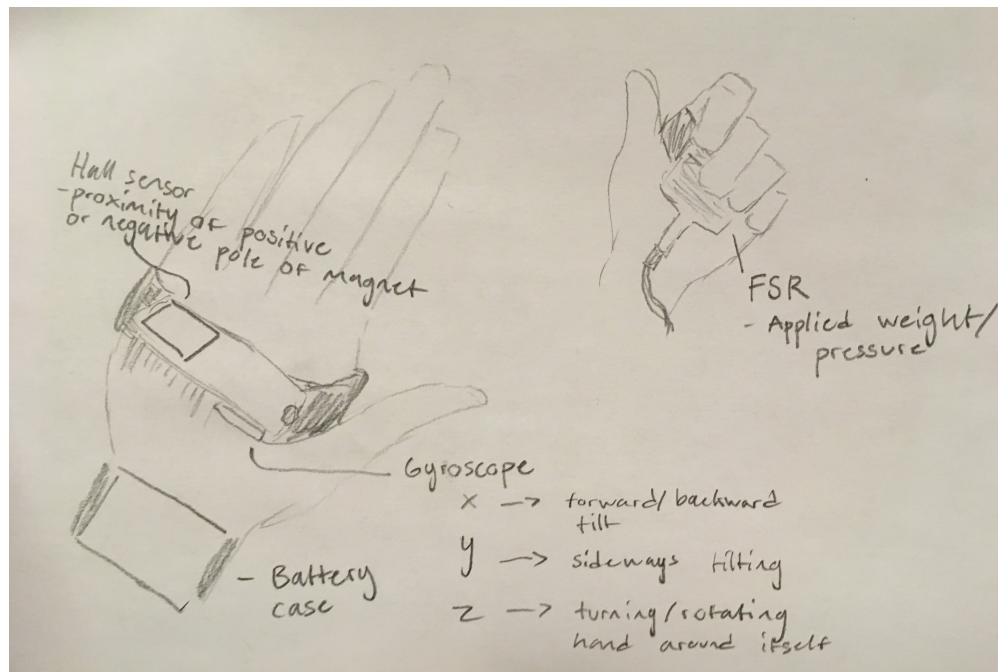 Hall sensor
- proximity of positive
or negative pole of magnet
FSR
- Applied weight/
pressure
Gyroscope
x → forward/backward
tilt
y → sideways tilting
z → turning/rotating
hand around itself
- Battery
case